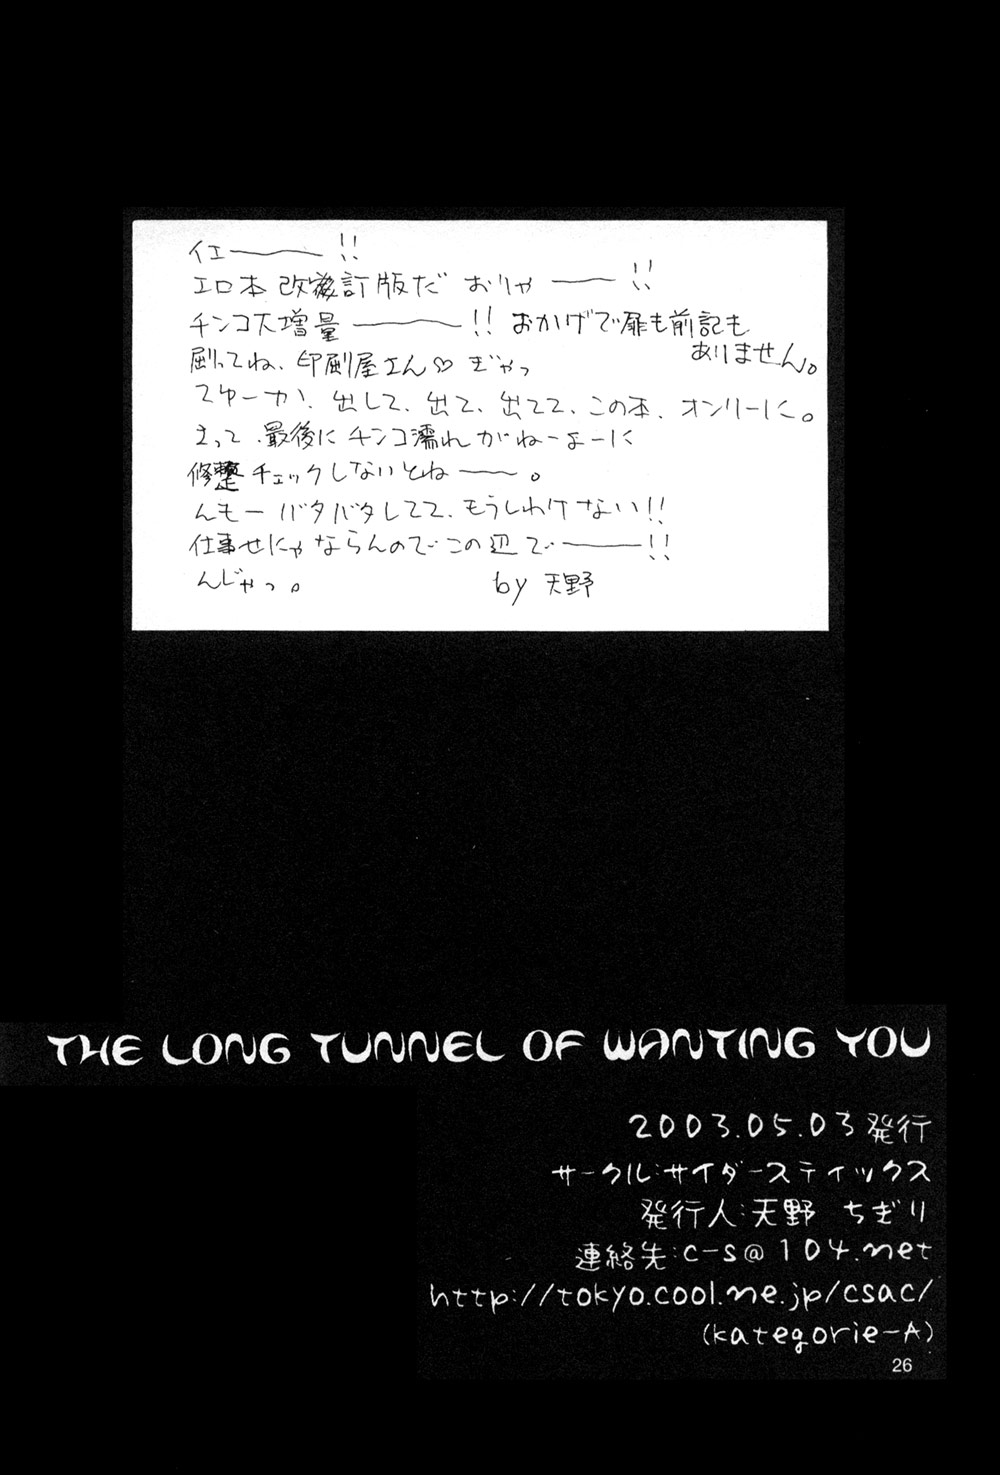 イエーーー!!
エロ本 改訂版だ おりゃーー!!
チンコ大増量ーーー!! おかげで扉も前記も
ありません。
刷ってね、印刷屋さん♡ ぎゃっ
てゆーか、出して、出て、出てて、この本、オンリーに。
まって、最後に チンコ濡れがねーよーに
修整チェックしないとねーー。
んもー バタバタしてて、もうしわけない!!
仕事せにゃならんのでこの辺でーー!!
んじゃっ。 by 天野
THE LONG TUNNEL OF WANTING YOU
2003.05.03発行
サークル:サイダースティックス
発行人:天野 ちぎり
連絡先:c-s@104.net
http://tokyo.cool.ne.jp/csac/
(kategorie-A)
26